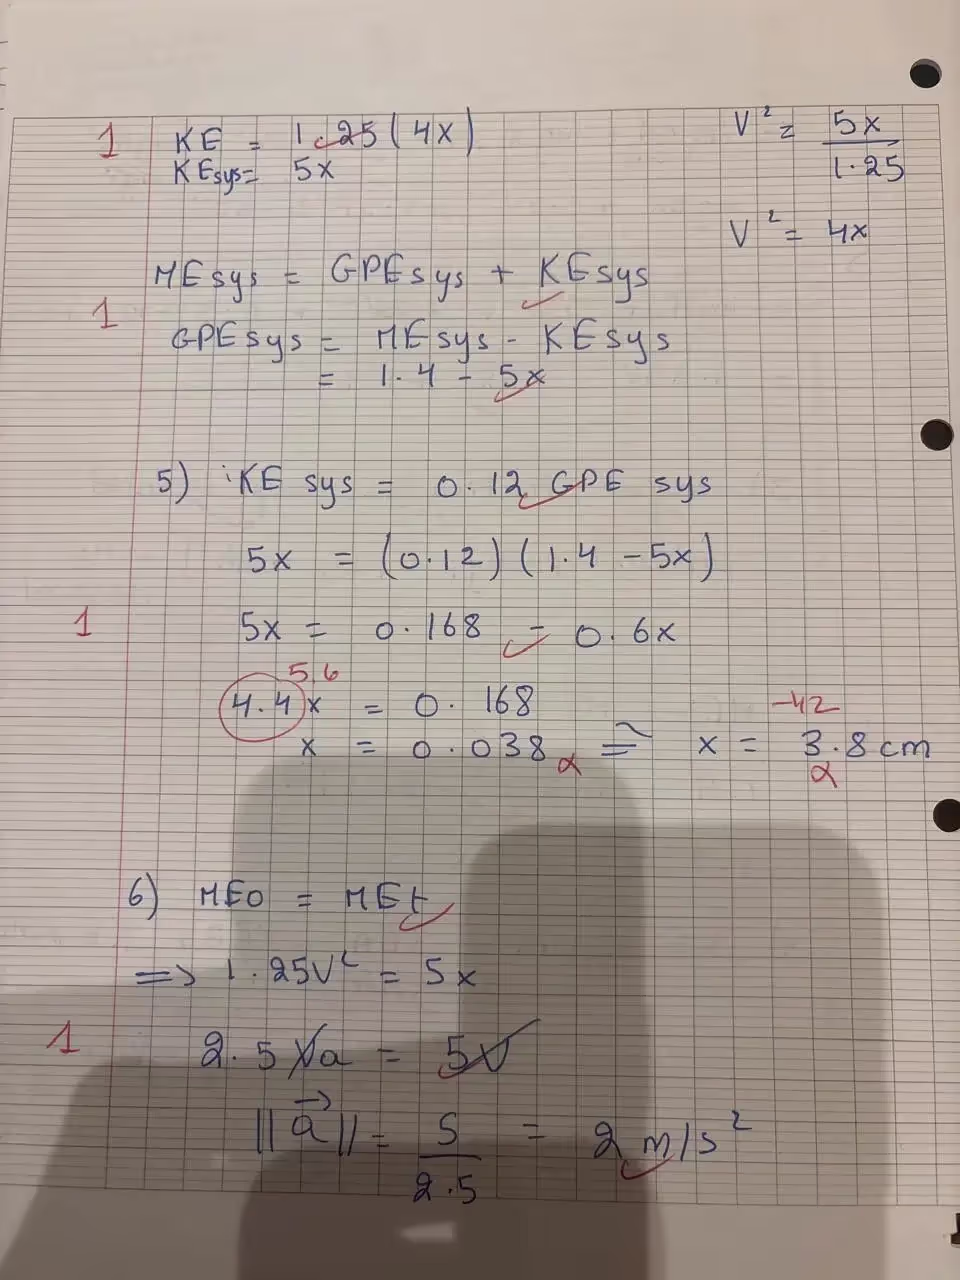 1 KE = 1.25(4x)
KEsys= 5x
V² = 5x / 1.25
V² = 4x
MEsys = GPEsys + KEsys
1
GPEsys = MEsys - KEsys
= 1.4 - 5x
5) KE sys = 0.12 GPE sys
5x = (0.12)(1.4 - 5x)
1 5x = 0.168 - 0.6x
5,6
4.4x = 0.168
-42
x = 0.038 ⇒ x = 3.8cm
6) ME0 = MEt
=> 1.25V² = 5x
1 2.5Va = 5V
||a⃗|| = 5 / 2.5 = 2 m/s²